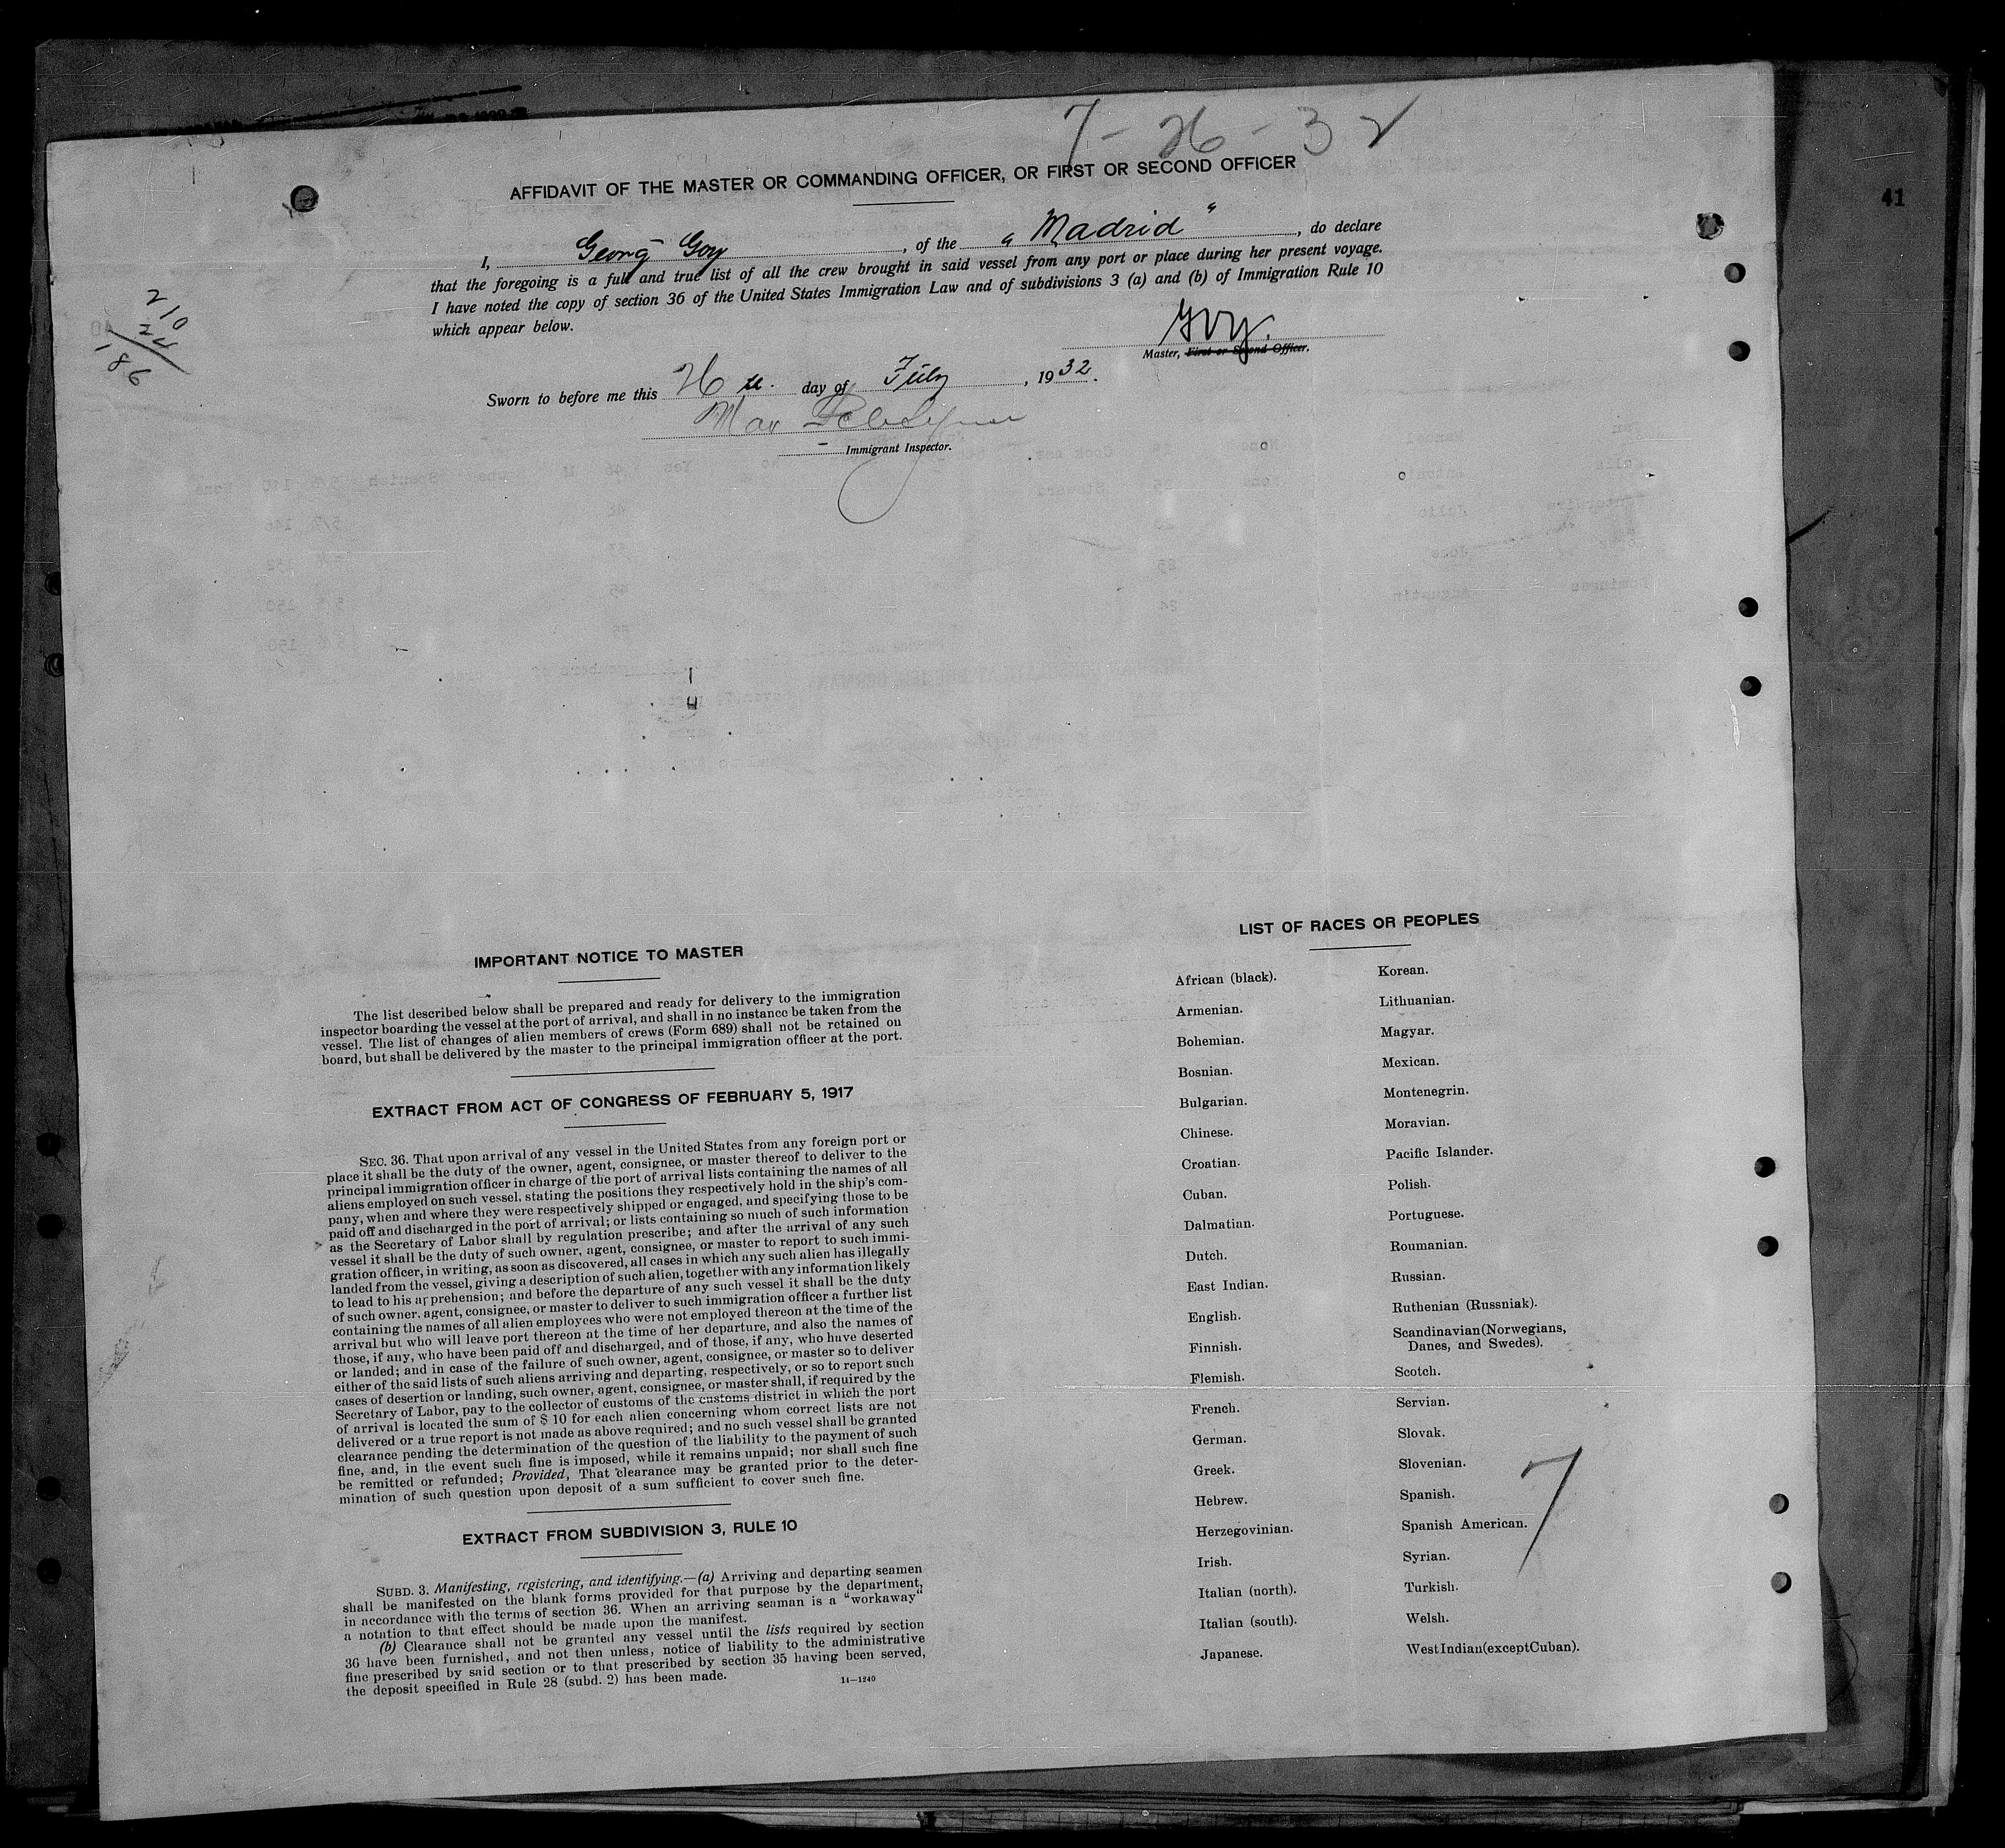 7-26-32
41
AFFIDAVIT OF THE MASTER OR COMMANDING OFFICER, OR FIRST OR SECOND OFFICER
I, Georg Goy, of the "Madrid", do declare
that the foregoing is a full and true list of all the crew brought in said vessel from any port or place during her present voyage.
I have noted the copy of section 36 of the United States Immigration Law and of subdivisions 3 (a) and (b) of Immigration Rule 10
which appear below.
Goy.
Master, First or Second Officer.
210
24
186
Sworn to before me this 26 day of July, 1932.
Max
Immigrant Inspector.
IMPORTANT NOTICE TO MASTER
The list described below shall be prepared and ready for delivery to the immigration
inspector boarding the vessel at the port of arrival, and shall in no instance be taken from the
vessel. The list of changes of alien members of crews (Form 689) shall not be retained on
board, but shall be delivered by the master to the principal immigration officer at the port.
EXTRACT FROM ACT OF CONGRESS OF FEBRUARY 5, 1917
SEC. 36. That upon arrival of any vessel in the United States from any foreign port or
place it shall be the duty of the owner, agent, consignee, or master thereof to deliver to the
principal immigration officer in charge of the port of arrival lists containing the names of all
aliens employed on such vessel, stating the positions they respectively hold in the ship's com-
pany, when and where they were respectively shipped or engaged, and specifying those to be
paid off and discharged in the port of arrival; or lists containing so much of such information
as the Secretary of Labor shall by regulation prescribe; and after the arrival of any such
vessel it shall be the duty of such owner, agent, consignee, or master to report to such immi-
gration officer, in writing, as soon as discovered, all cases in which any such alien has illegally
landed from the vessel, giving a description of such alien, together with any information likely
to lead to his apprehension; and before the departure of any such vessel it shall be the duty
of such owner, agent, consignee, or master to deliver to such immigration officer a further list
containing the names of all alien employees who were not employed thereon at the time of the
arrival but who will leave port thereon at the time of her departure, and also the names of
those, if any, who have been paid off and discharged, and of those, if any, who have deserted
or landed; and in case of the failure of such owner, agent, consignee, or master so to deliver
either of the said lists of such aliens arriving and departing, respectively, or so to report such
cases of desertion or landing, such owner, agent, consignee, or master shall, if required by the
Secretary of Labor, pay to the collector of customs of the customs district in which the port
of arrival is located the sum of $ 10 for each alien concerning whom correct lists are not
delivered or a true report is not made as above required; and no such vessel shall be granted
clearance pending the determination of the question of the liability to the payment of such
fine, and, in the event such fine is imposed, while it remains unpaid; nor shall such fine
be remitted or refunded; Provided, That clearance may be granted prior to the deter-
mination of such question upon deposit of a sum sufficient to cover such fine.
EXTRACT FROM SUBDIVISION 3, RULE 10
SUBD. 3. Manifesting, registering, and identifying.—(a) Arriving and departing seamen
shall be manifested on the blank forms provided for that purpose by the department,
in accordance with the terms of section 36. When an arriving seaman is a "workaway"
a notation to that effect should be made upon the manifest.
(b) Clearance shall not be granted any vessel until the lists required by section
36 have been furnished, and not then unless, notice of liability to the administrative
fine prescribed by said section or to that prescribed by section 35 having been served,
the deposit specified in Rule 28 (subd. 2) has been made.
14—1240
LIST OF RACES OR PEOPLES
African (black).
Armenian.
Bohemian.
Bosnian.
Bulgarian.
Chinese.
Croatian.
Cuban.
Dalmatian.
Dutch.
East Indian.
English.
Finnish.
Flemish.
French.
German.
Greek.
Hebrew.
Herzegovinian.
Irish.
Italian (north).
Italian (south).
Japanese.
Korean.
Lithuanian.
Magyar.
Mexican.
Montenegrin.
Moravian.
Pacific Islander.
Polish.
Portuguese.
Roumanian.
Russian.
Ruthenian (Russniak).
Scandinavian (Norwegians,
Danes, and Swedes).
Scotch.
Servian.
Slovak.
Slovenian.
Spanish.
Spanish American.
Syrian.
Turkish.
Welsh.
West Indian (except Cuban).
7